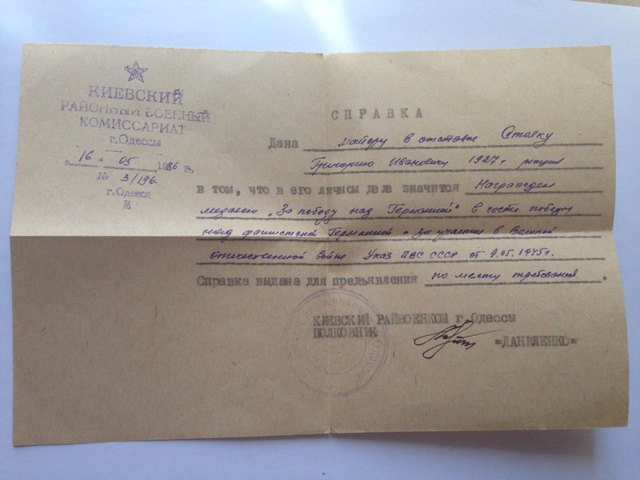 КИЕВСКИЙ
РАЙОННЫЙ ВОЕННЫЙ
КОМИССАРИАТ
г. Одессы
"16" 05 1986 г.
№ 3/196
г. Одесса
СПРАВКА
Дана майору в отставке Ставку
Григорию Ивановичу 1927 г. рожд
в том, что в его личном деле значится Награжден
медалью „За победу над Германией" в честь победы
над фашистской Германией - за участие в Великой
отечественной войне Указ ПВС СССР от 9.05.1945г.
Справка выдана для предъявления по месту требования.
КИЕВСКИЙ РАЙВОЕНКОМ г. Одессы
ПОЛКОВНИК
=ДАНИЛЕНКО=